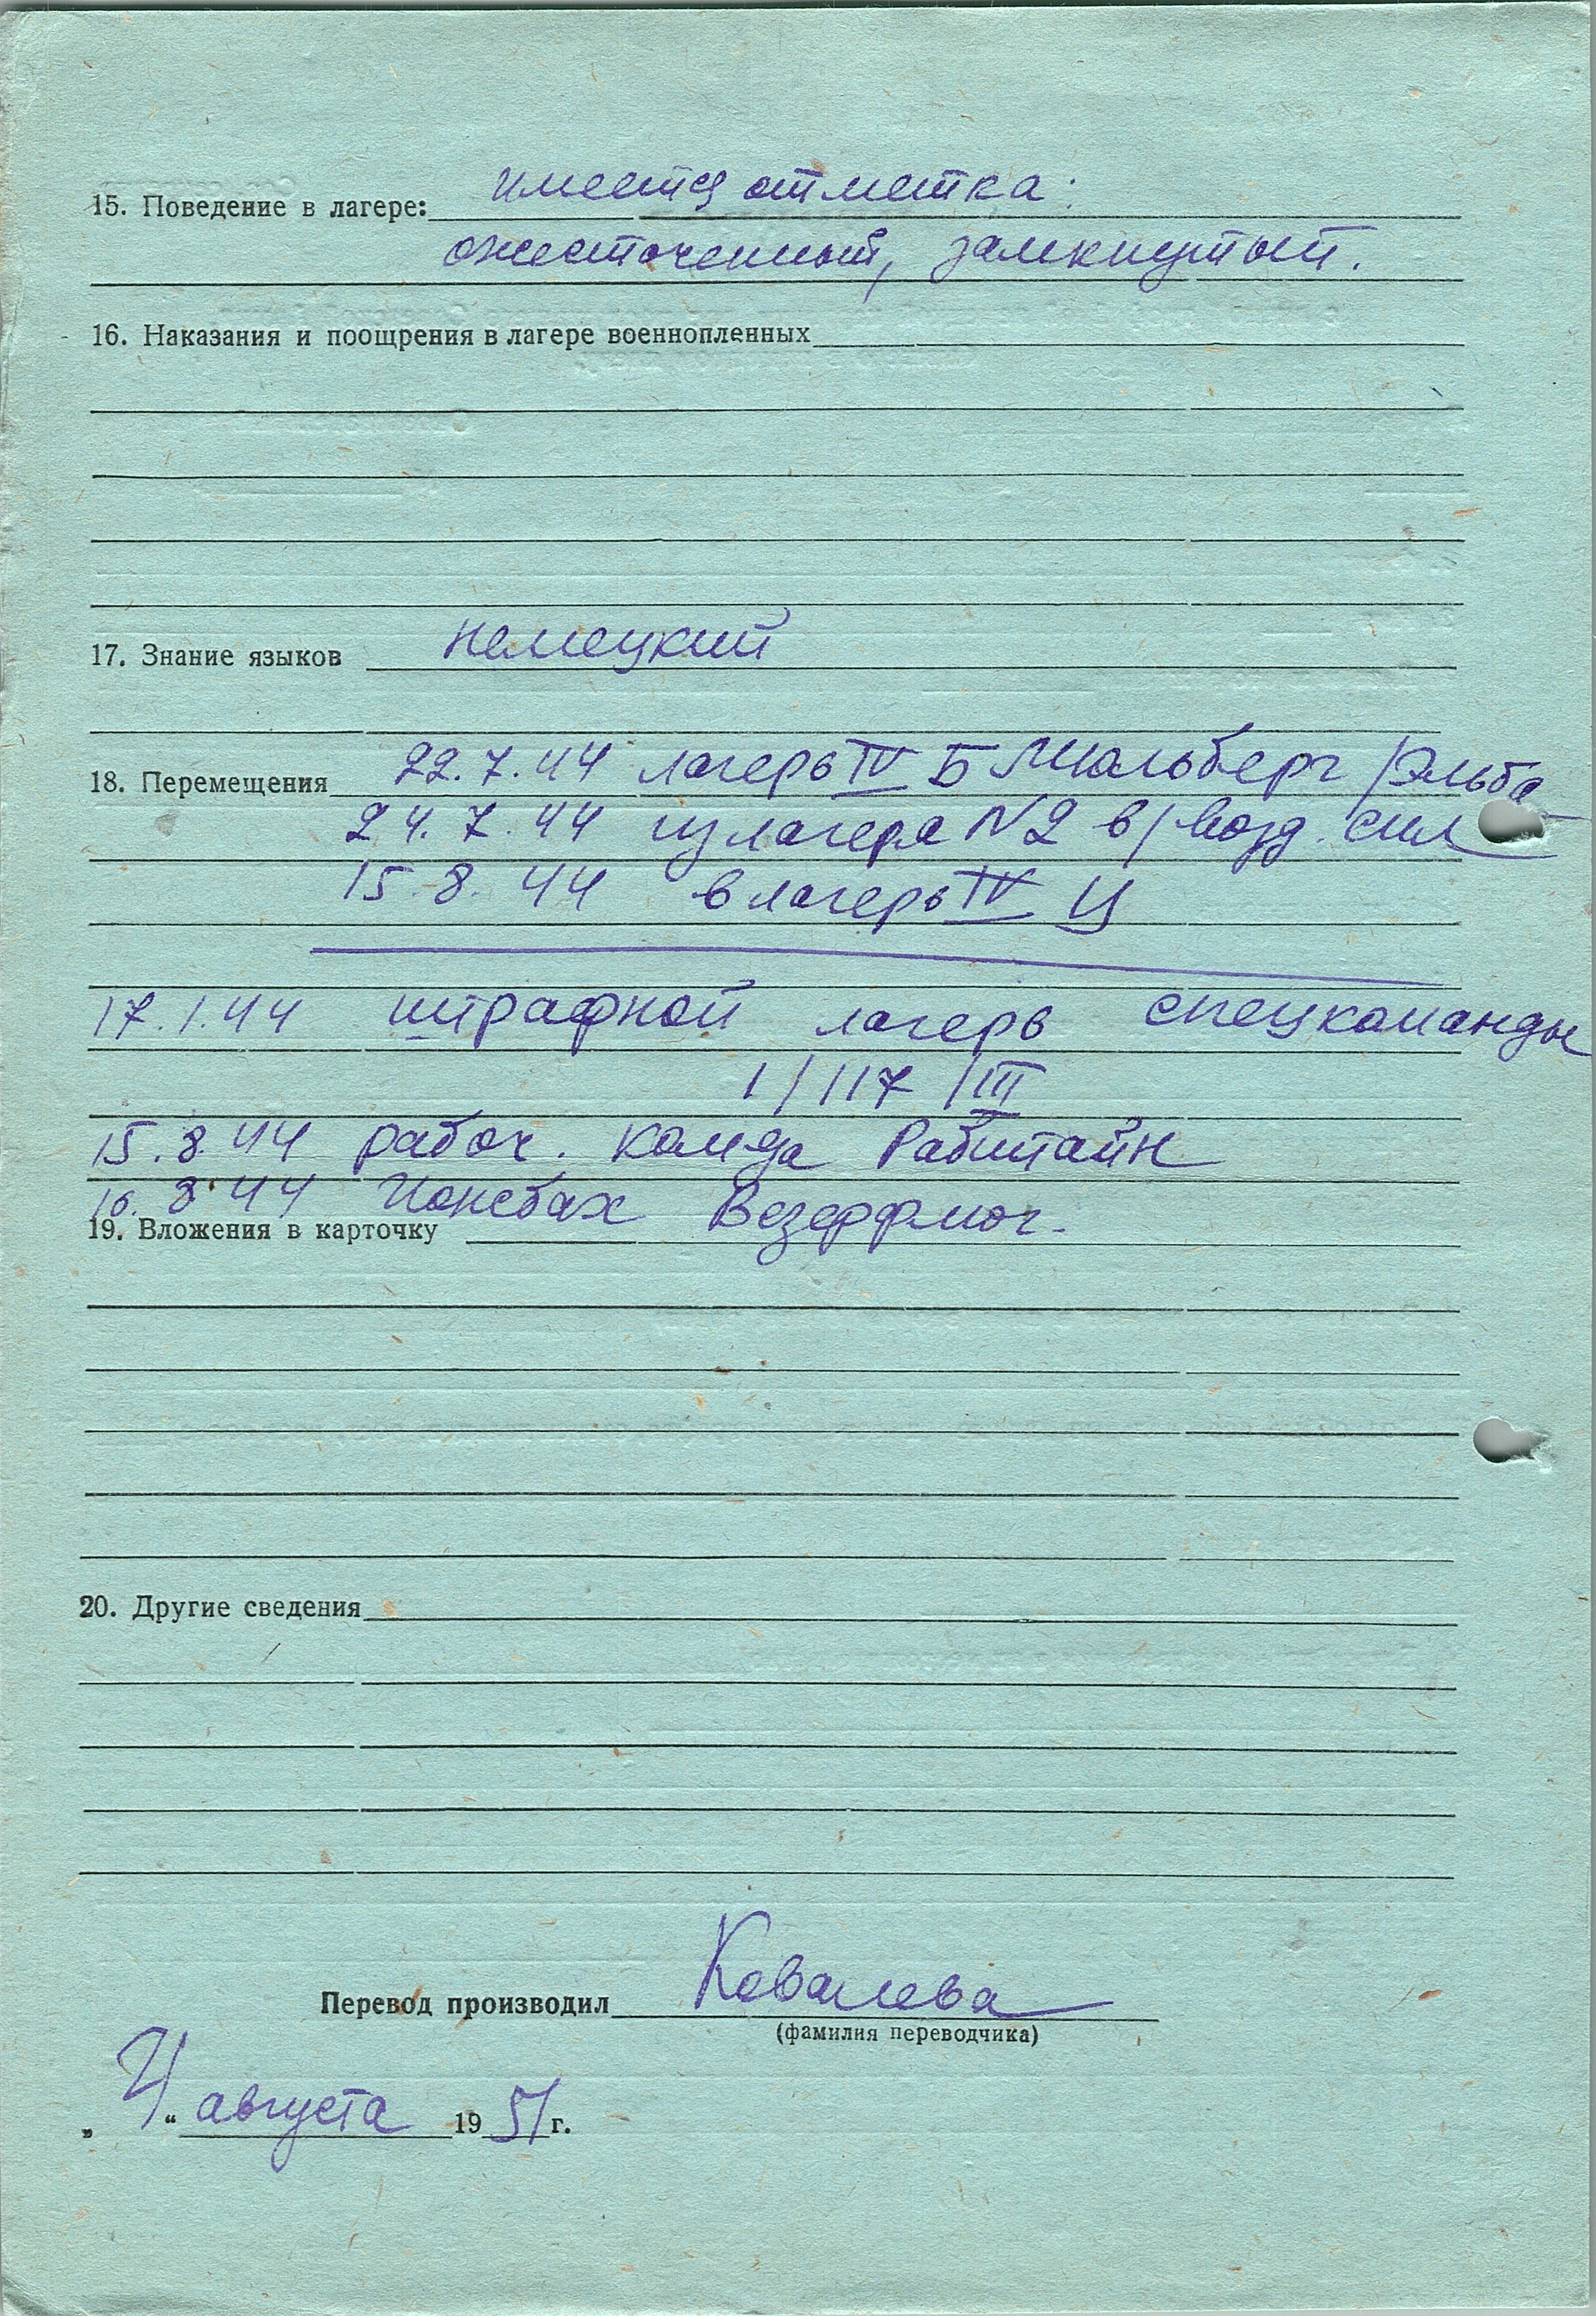 15. Поведение в лагере: имеется отметка:
ожесточенный, замкнутый.
16. Наказания и поощрения в лагере военнопленных
17. Знание языков немецкий
18. Перемещения 22.7.44 лагерь IV Б Мюльберг /Эльба
24.7.44 из лагеря N2 в/возд. сил
15.8.44 в лагерь IV Ц
17.1.44 штрафной лагерь спецкоманды
1/117/III
15.8.44 рабоч. комда Рабштайн
16.8.44
19. Вложения в карточку
20. Другие сведения
Перевод производил Ковалева
(фамилия переводчика)
„4“ августа 1951 г.